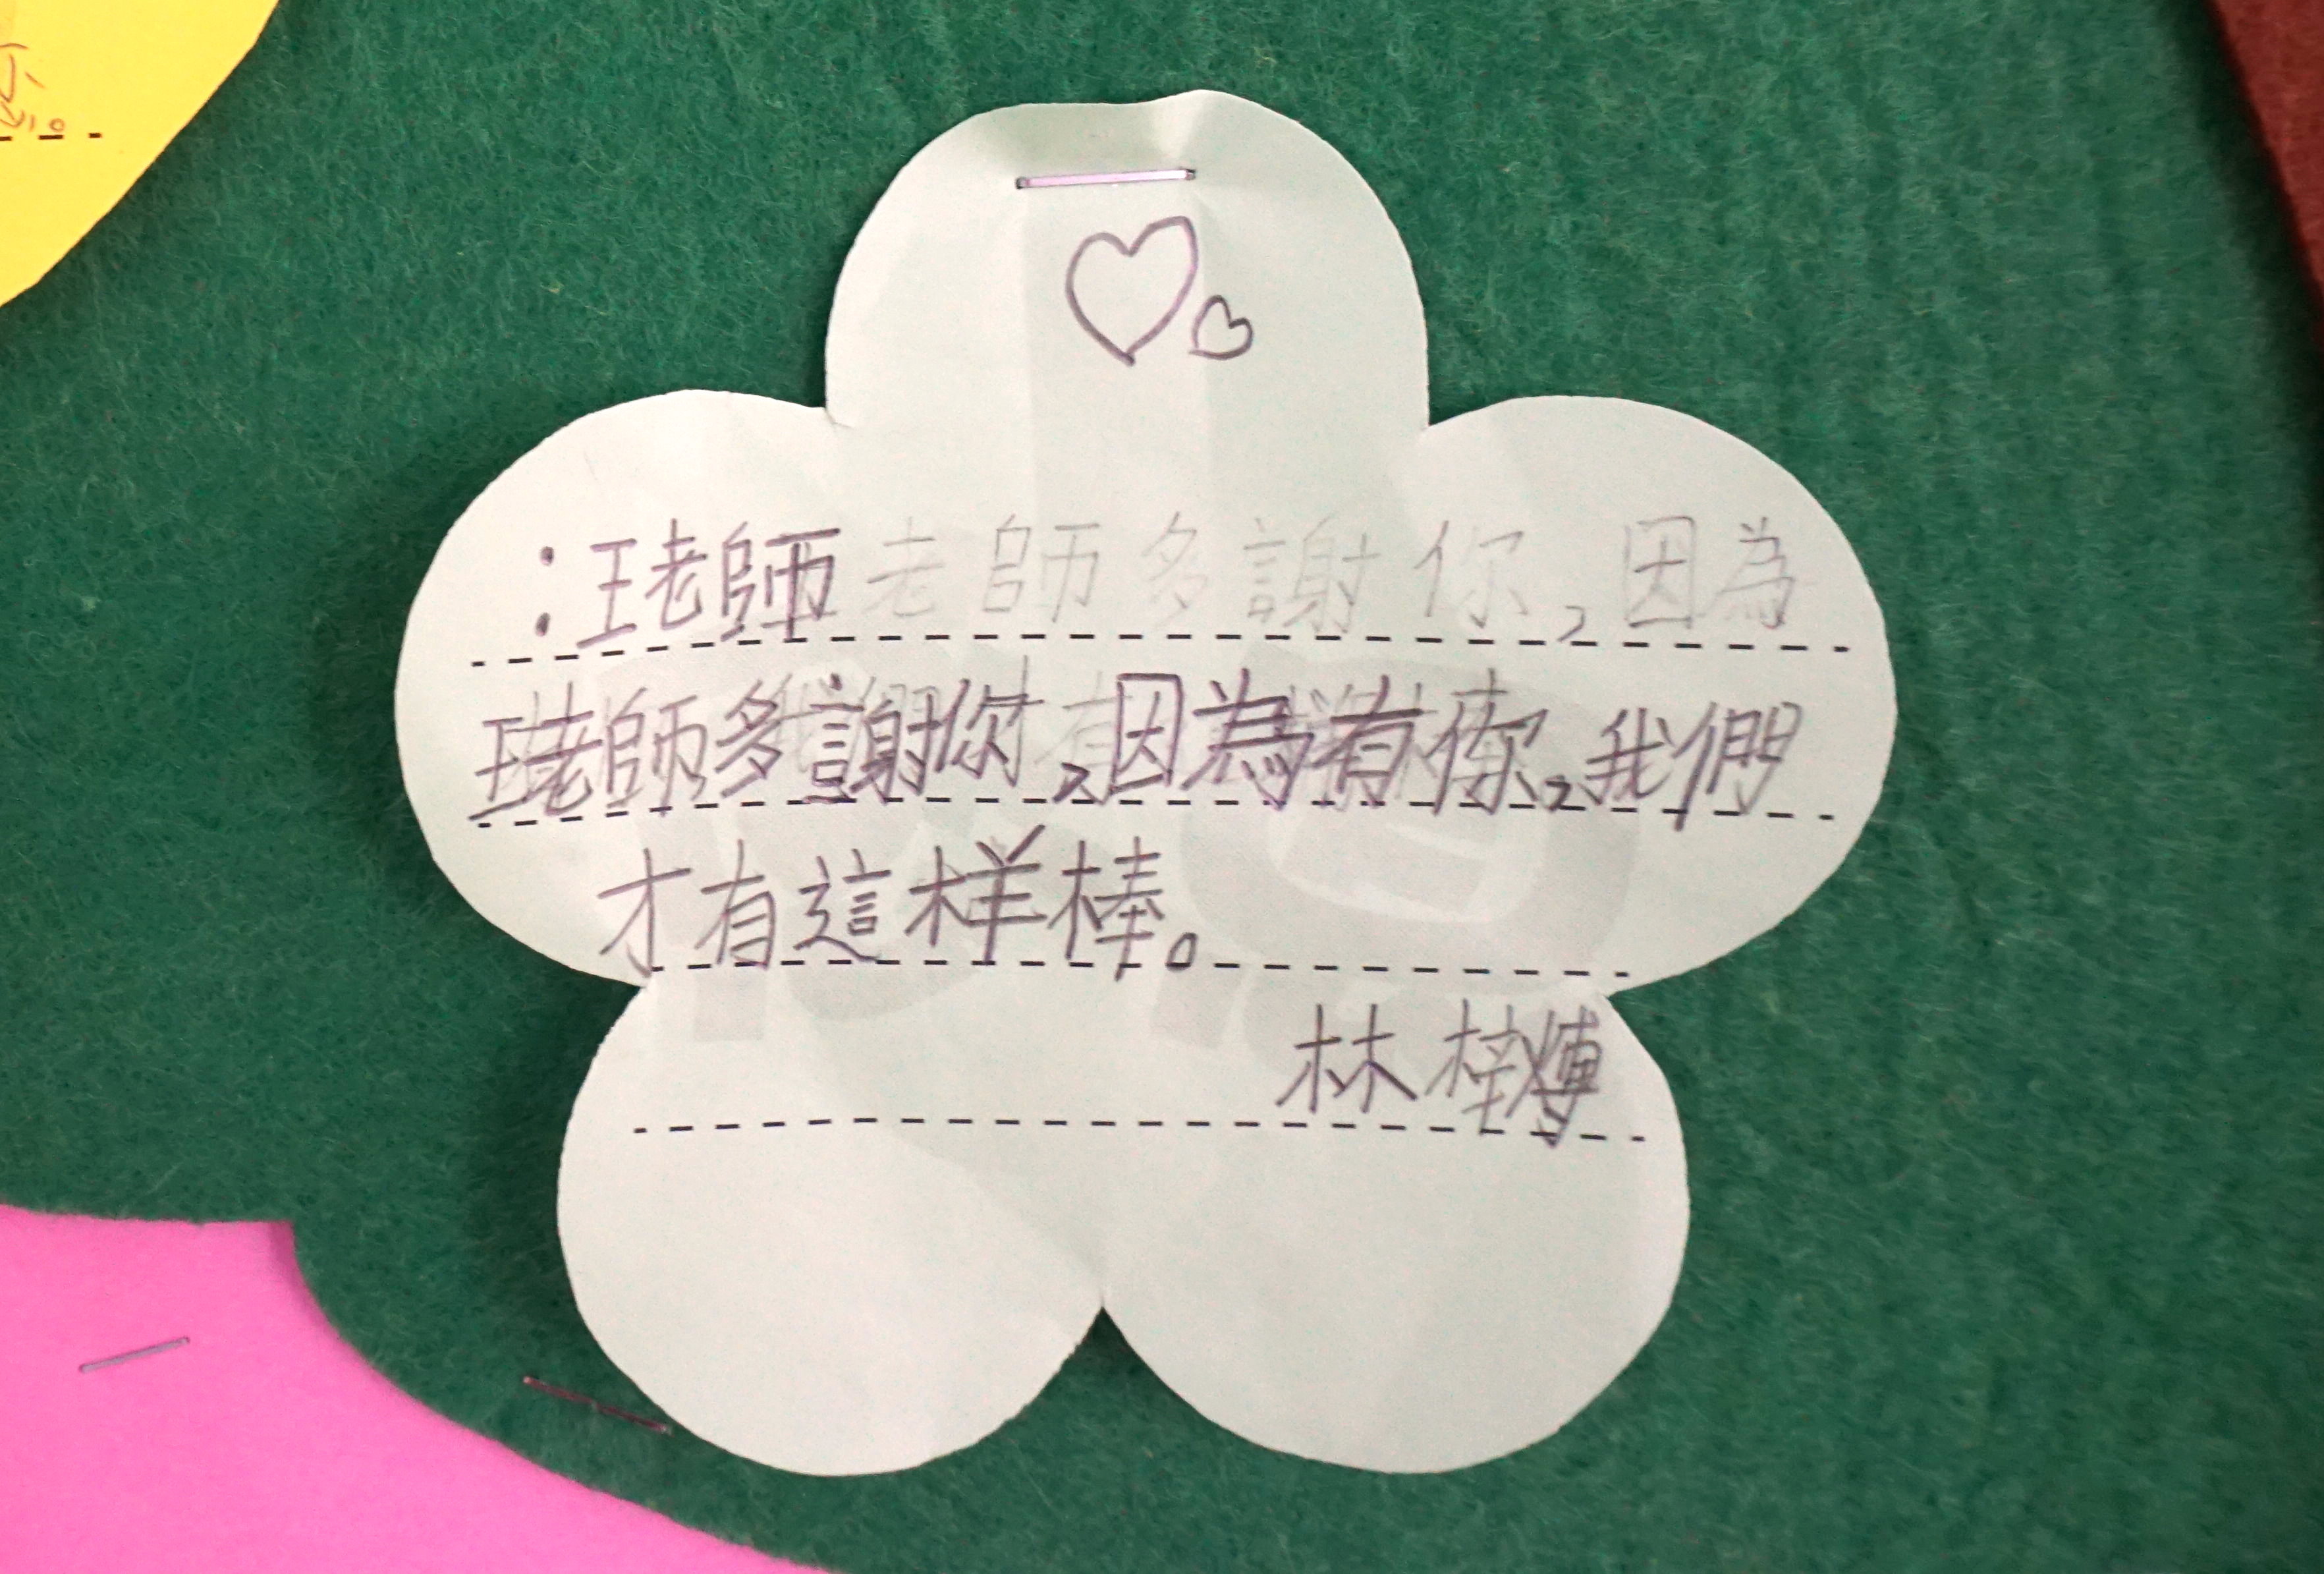 ：王老師老師多謝你，因為
王老師多謝你，因為有你，我們
才有這样棒。
林梓煿